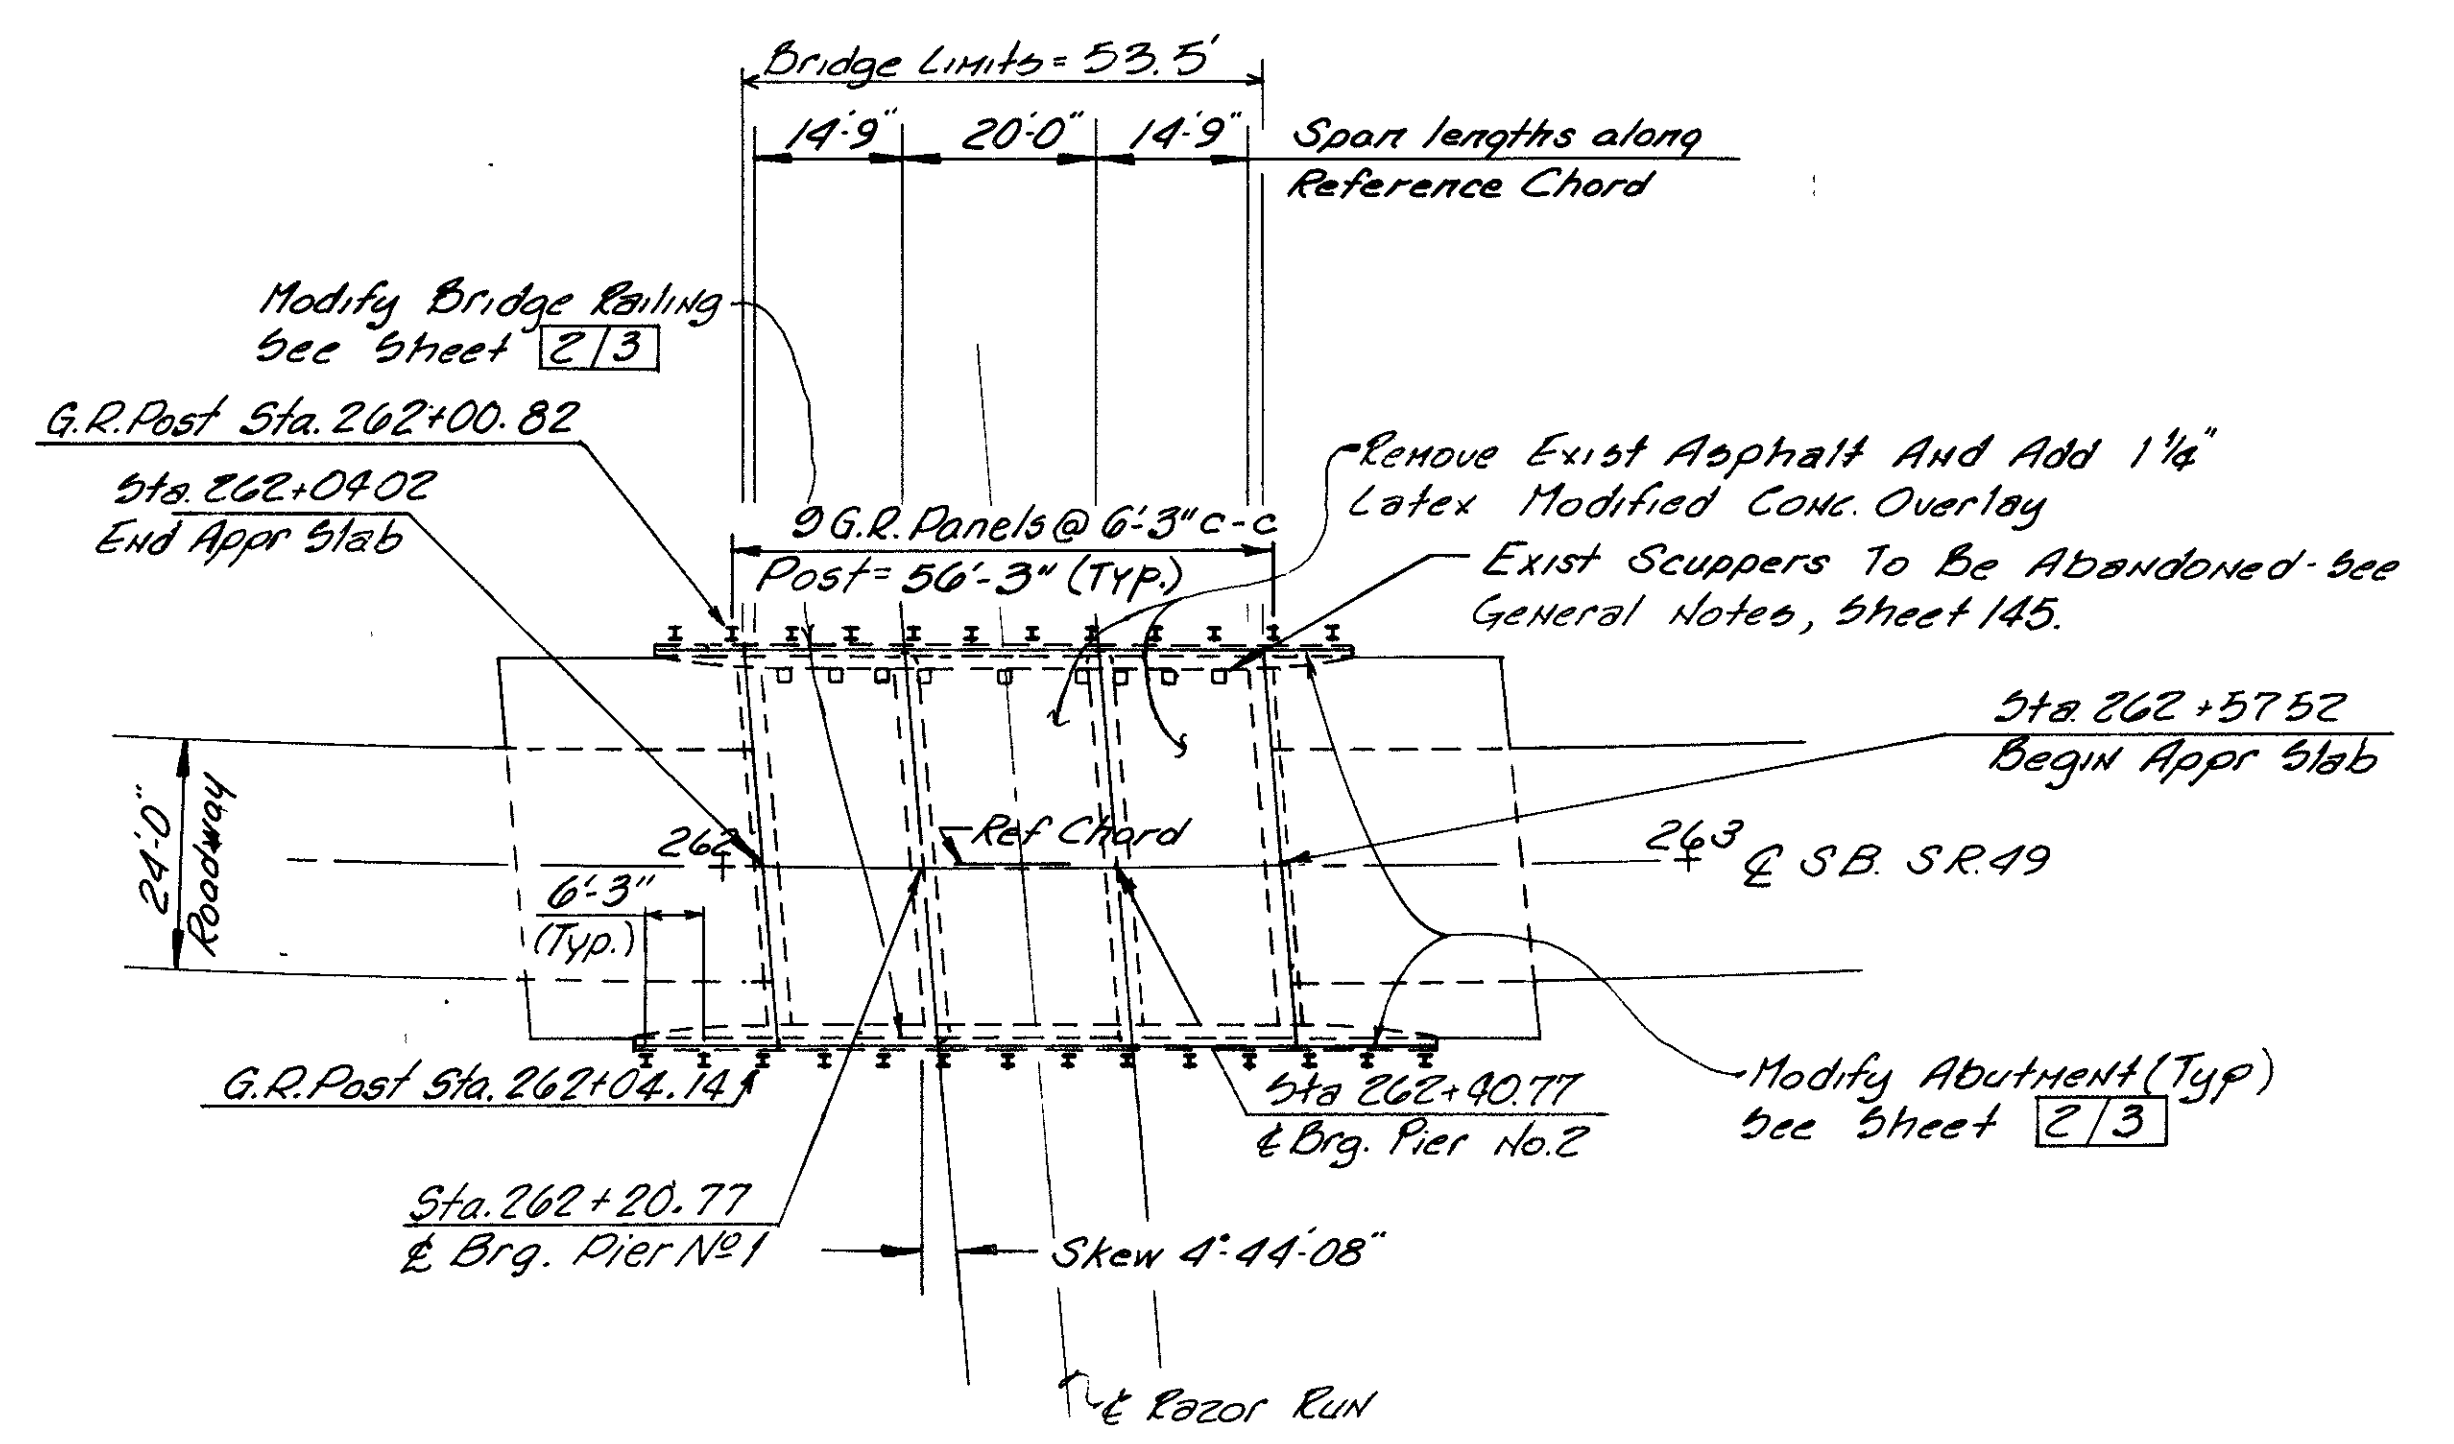 Bridge Limits = 53.5'
14'-9" 20'-0" 14'-9" Span lengths along
Reference Chord
Modify Bridge Railing
See Sheet 2/3
G.R. Post Sta. 262+00.82
Sta. 262+04 02
End Appr Slab
Remove Exist Asphalt And Add 1 1/4"
Latex Modified Conc. Overlay
9 G.R. Panels @ 6'-3" c-c
Post = 56'-3" (Typ.)
Exist Scuppers To Be Abandoned - See
General Notes, Sheet 145.
Sta. 262+57 52
Begin Appr Slab
24'-0"
Roadway
262
Ref Chord
263
℄ S B. S R. 49
6'-3"
(Typ.)
G.R. Post Sta. 262+04.14
Sta 262+40.77
℄ Brg. Pier No. 2
Modify Abutment (Typ)
See Sheet 2/3
Sta. 262+20.77
℄ Brg. Pier Nº 1
Skew 4°-44'-08"
℄ Razor Run